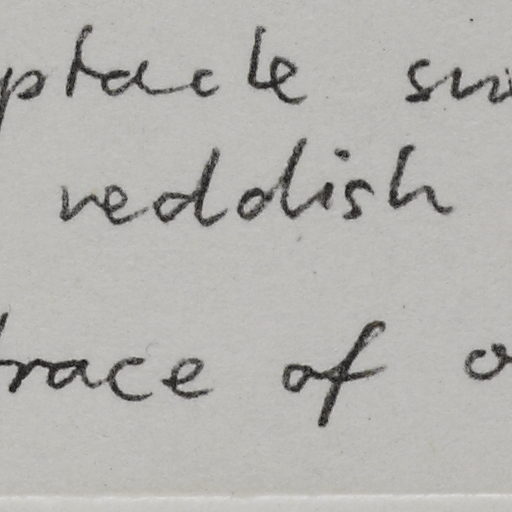 ptacle
reddish
trace of